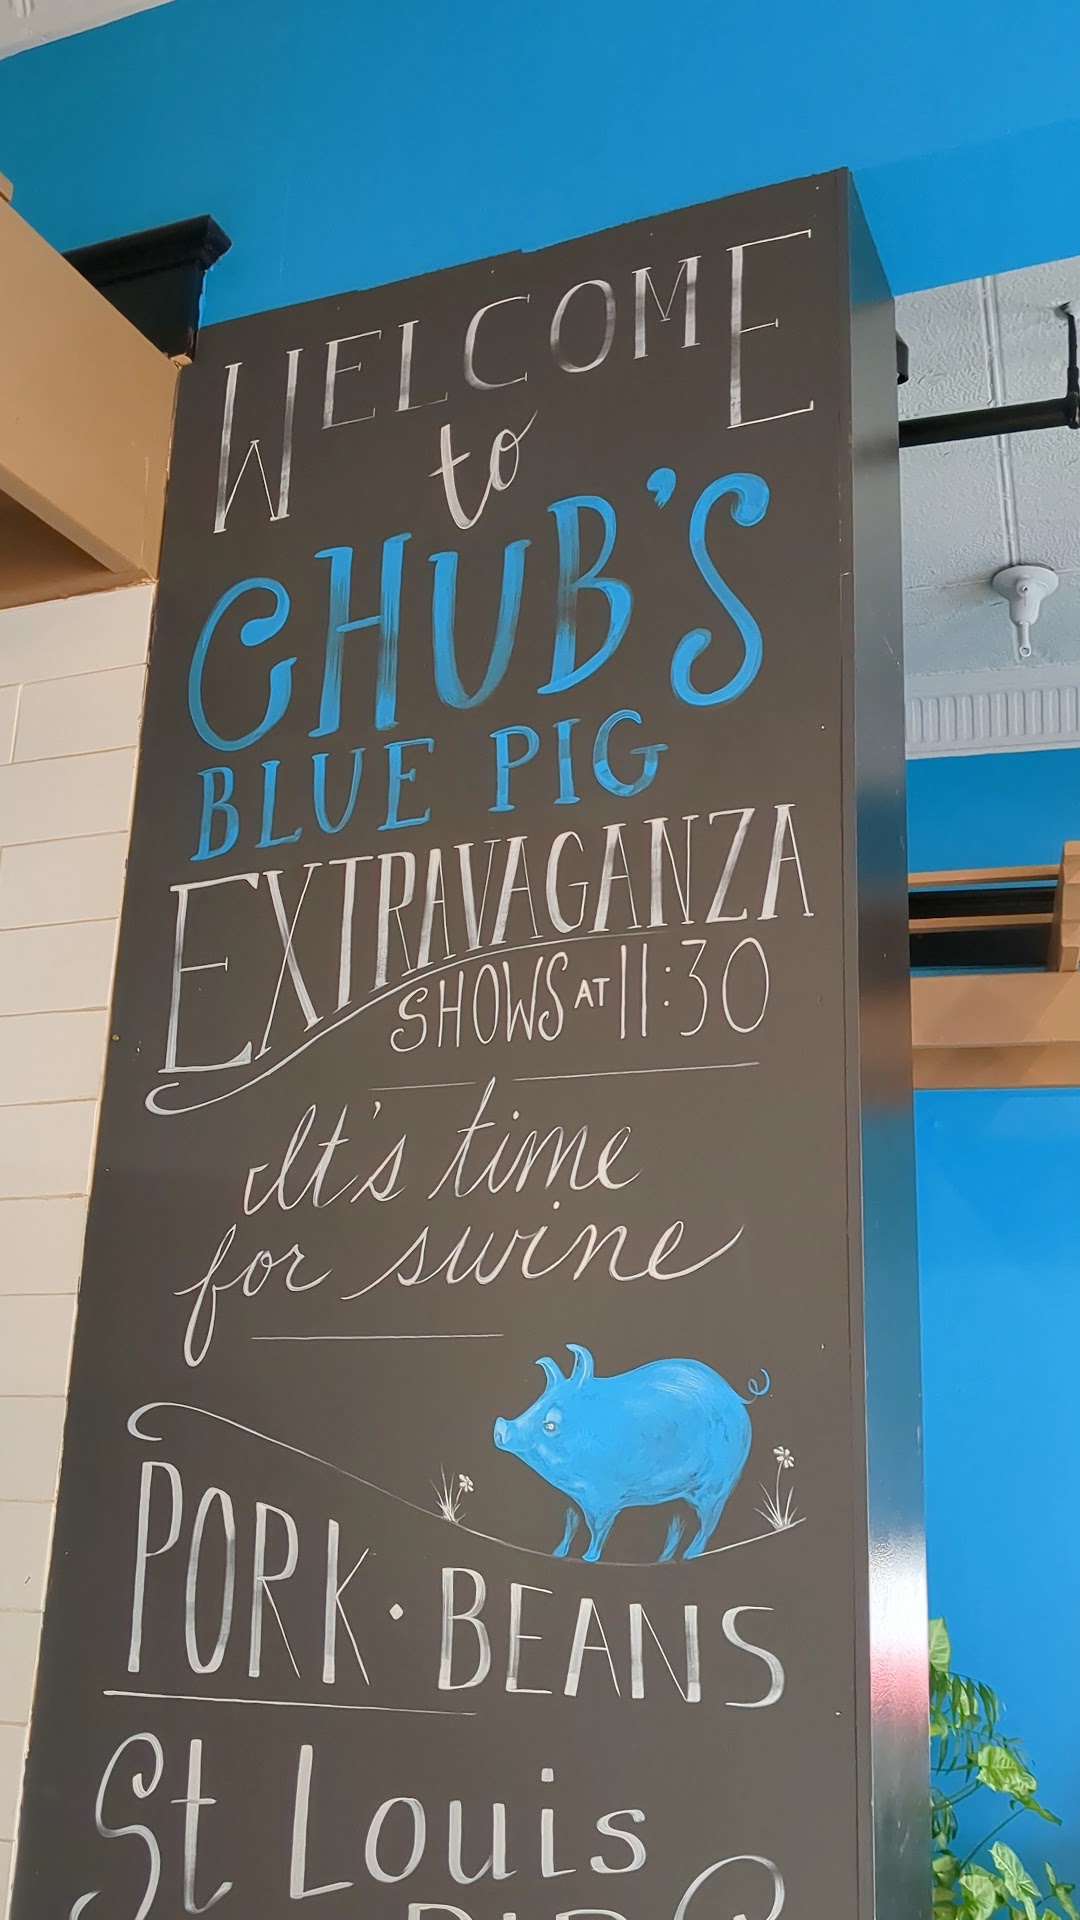 WELCOME
to
CHUB'S
BLUE PIG
EXTRAVAGANZA
SHOWS AT 11:30
It's time
for swine
PORK · BEANS
St Louis